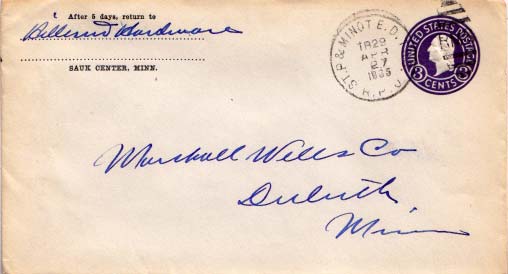 After 5 days, return to
Hardware
SAUK CENTER, MINN.
ST. P & MINOT E.D.
TR 29
APR
27
1935
R.P.O.
UNITED STATES POSTAGE
3 3
CENTS
Marshall Wells Co
Duluth
Minn